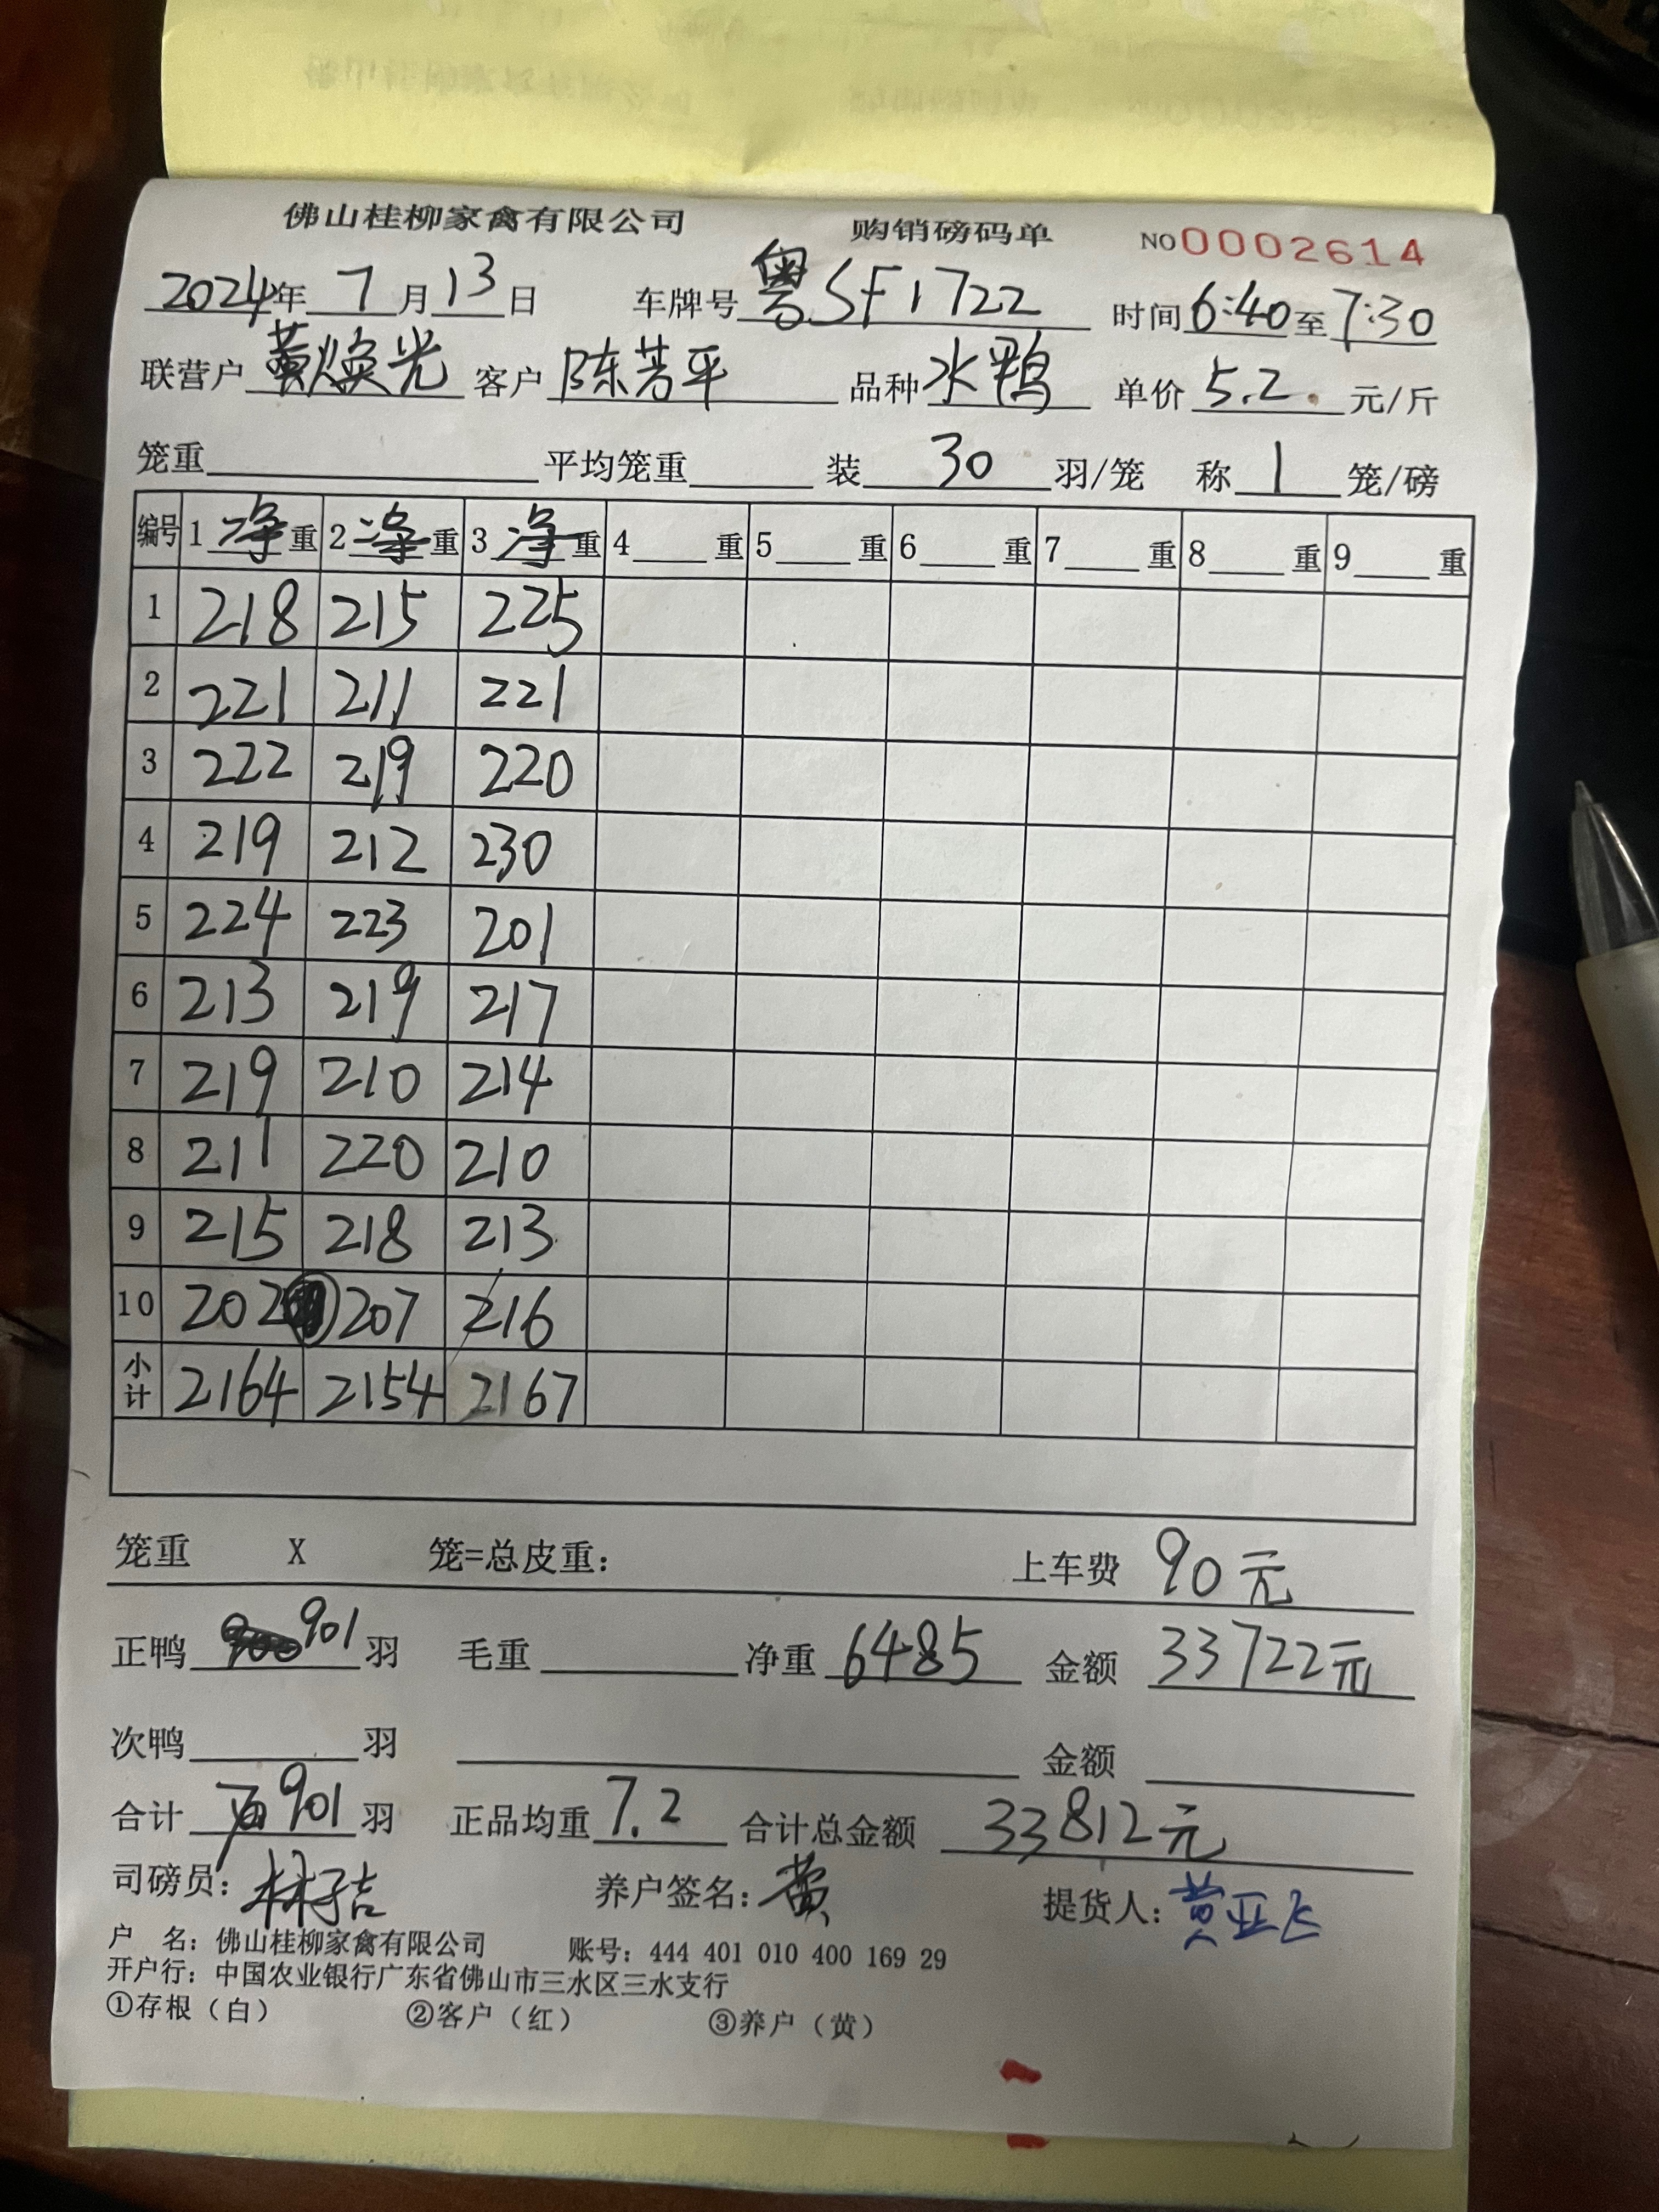 佛山桂柳家禽有限公司 购销磅码单 NO0002614
2024年7月13日 车牌号粤SF1722 时间6:40至7:30
联营户黄焕光 客户陈芳平 品种水鸭 单价5.2.元/斤
笼重 平均笼重 装30羽/笼 称1笼/磅
编号 1净重 2净重 3净重 4重 5重 6重 7重 8重 9重
1 218 215 225
2 221 211 221
3 222 219 220
4 219 212 230
5 224 223 201
6 213 219 217
7 219 210 214
8 211 220 210
9 215 218 213
10 202 207 216
小计 2164 2154 2167
笼重 X 笼=总皮重: 上车费 90元
正鸭901羽 毛重 净重6485 金额33722元
次鸭 羽 金额
合计901羽 正品均重7.2 合计总金额33812元
司磅员: 林子吉 养户签名: 黄 提货人: 黄亚飞
户 名: 佛山桂柳家禽有限公司 账号: 444 401 010 400 169 29
开户行: 中国农业银行广东省佛山市三水区三水支行
①存根（白） ②客户（红） ③养户（黄）